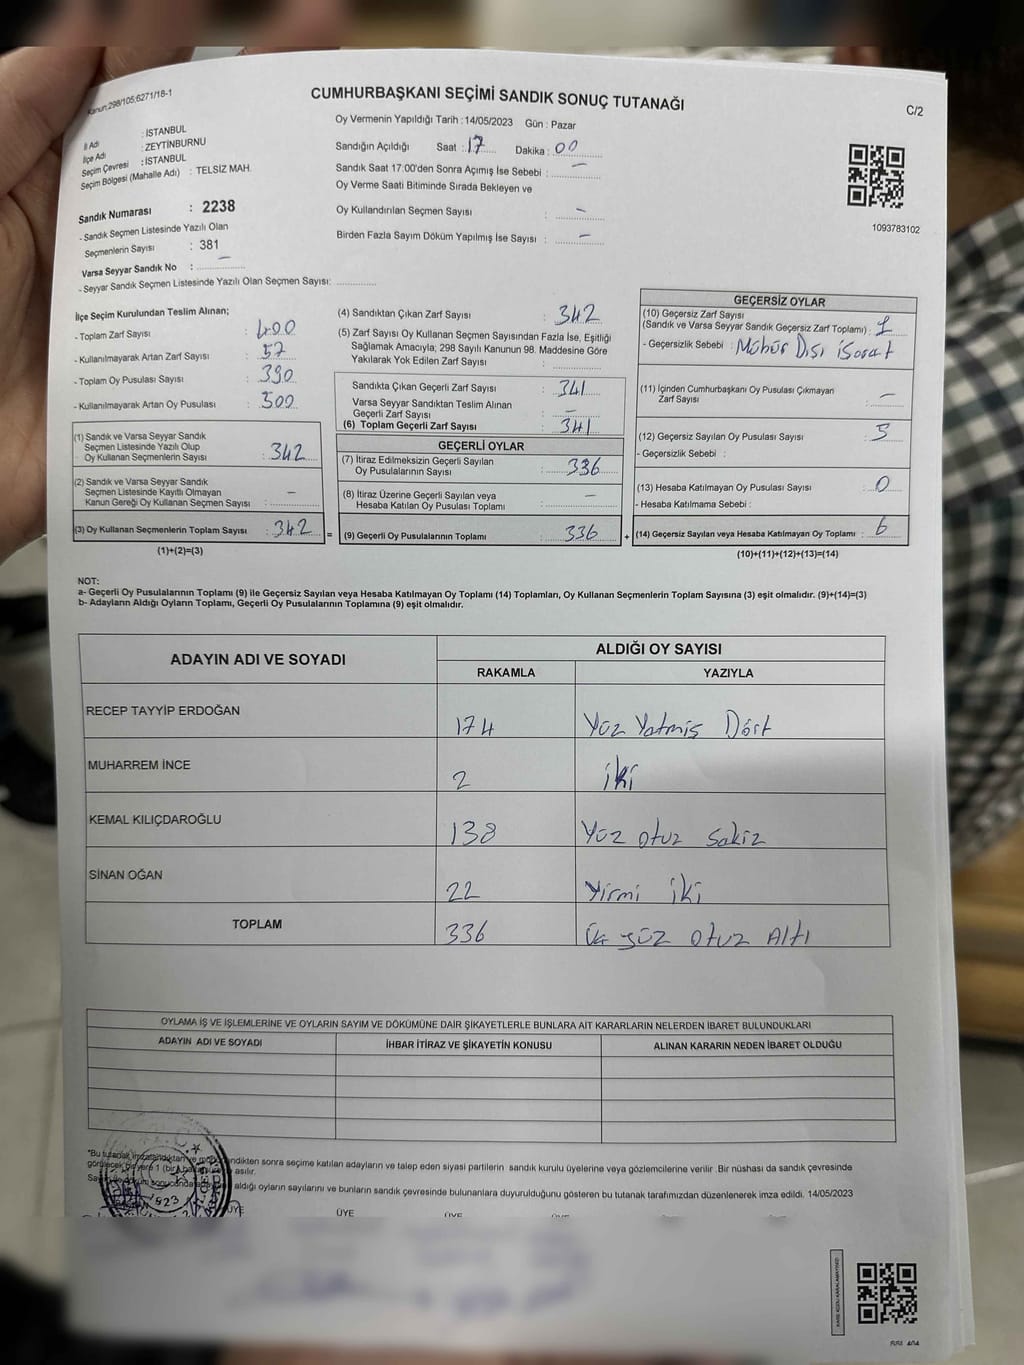 Kanun:298/105;6271/18-1
CUMHURBAŞKANI SEÇİMİ SANDIK SONUÇ TUTANAĞI
C/2
İl Adı : İSTANBUL
İlçe Adı : ZEYTİNBURNU
Seçim Çevresi : İSTANBUL
Seçim Bölgesi (Mahalle Adı) : TELSİZ MAH.
Oy Vermenin Yapıldığı Tarih : 14/05/2023 Gün : Pazar
Sandığın Açıldığı Saat : 17 Dakika : 00
Sandık Saat 17:00'den Sonra Açımış İse Sebebi : -
Oy Verme Saati Bitiminde Sırada Bekleyen ve
Oy Kullandırılan Seçmen Sayısı : -
Birden Fazla Sayım Döküm Yapılmış İse Sayısı : -
1093783102
Sandık Numarası : 2238
- Sandık Seçmen Listesinde Yazılı Olan
Seçmenlerin Sayısı : 381
Varsa Seyyar Sandık No : -
- Seyyar Sandık Seçmen Listesinde Yazılı Olan Seçmen Sayısı:
İlçe Seçim Kurulundan Teslim Alınan;
- Toplam Zarf Sayısı : 400
- Kullanılmayarak Artan Zarf Sayısı : 57
- Toplam Oy Pusulası Sayısı : 390
- Kullanılmayarak Artan Oy Pusulası : 500
(1) Sandık ve Varsa Seyyar Sandık
Seçmen Listesinde Yazılı Olup
Oy Kullanan Seçmenlerin Sayısı : 342
(2) Sandık ve Varsa Seyyar Sandık
Seçmen Listesinde Kayıtlı Olmayan
Kanun Gereği Oy Kullanan Seçmen Sayısı : -
(3) Oy Kullanan Seçmenlerin Toplam Sayısı : 342 =
(1)+(2)=(3)
(4) Sandıktan Çıkan Zarf Sayısı : 342
(5) Zarf Sayısı Oy Kullanan Seçmen Sayısından Fazla İse, Eşitliği
Sağlamak Amacıyla, 298 Sayılı Kanunun 98. Maddesine Göre
Yakılarak Yok Edilen Zarf Sayısı :
Sandıkta Çıkan Geçerli Zarf Sayısı : 341
Varsa Seyyar Sandıktan Teslim Alınan
Geçerli Zarf Sayısı : -
(6) Toplam Geçerli Zarf Sayısı : 341
GEÇERLİ OYLAR
(7) İtiraz Edilmeksizin Geçerli Sayılan
Oy Pusulalarının Sayısı : 336
(8) İtiraz Üzerine Geçerli Sayılan veya
Hesaba Katılan Oy Pusulası Toplamı : -
(9) Geçerli Oy Pusulalarının Toplamı : 336 +
GEÇERSİZ OYLAR
(10) Geçersiz Zarf Sayısı
(Sandık ve Varsa Seyyar Sandık Geçersiz Zarf Toplamı) : 1
- Geçersizlik Sebebi : Mühür Dışı işarat
(11) İçinden Cumhurbaşkanı Oy Pusulası Çıkmayan
Zarf Sayısı : -
(12) Geçersiz Sayılan Oy Pusulası Sayısı : 5
- Geçersizlik Sebebi :
(13) Hesaba Katılmayan Oy Pusulası Sayısı : 0
- Hesaba Katılmama Sebebi :
(14) Geçersiz Sayılan veya Hesaba Katılmayan Oy Toplamı : 6
(10)+(11)+(12)+(13)=(14)
NOT:
a- Geçerli Oy Pusulalarının Toplamı (9) ile Geçersiz Sayılan veya Hesaba Katılmayan Oy Toplamı (14) Toplamları, Oy Kullanan Seçmenlerin Toplam Sayısına (3) eşit olmalıdır. (9)+(14)=(3)
b- Adayların Aldığı Oyların Toplamı, Geçerli Oy Pusulalarının Toplamına (9) eşit olmalıdır.
ADAYIN ADI VE SOYADI
ALDIĞI OY SAYISI
RAKAMLA YAZIYLA
RECEP TAYYİP ERDOĞAN 174 Yüz Yatmiş Dört
MUHARREM İNCE 2 iki
KEMAL KILIÇDAROĞLU 138 Yüz otuz sakiz
SİNAN OĞAN 22 Yirmi iki
TOPLAM 336 Üç yüz otuz Altı
OYLAMA İŞ VE İŞLEMLERİNE VE OYLARIN SAYIM VE DÖKÜMÜNE DAİR ŞİKAYETLERLE BUNLARA AİT KARARLARIN NELERDEN İBARET BULUNDUKLARI
ADAYIN ADI VE SOYADI İHBAR İTİRAZ VE ŞİKAYETİN KONUSU ALINAN KARARIN NEDEN İBARET OLDUĞU
*Bu tutanak imzalandıktan ve mühürlendikten sonra seçime katılan adayların ve talep eden siyasi partilerin sandık kurulu üyelerine veya gözlemcilerine verilir. Bir nüshası da sandık çevresinde
görülecek bir yere 1 (bir) asılır.
aldığı oyların sayılarını ve bunların sandık çevresinde bulunanlara duyurulduğunu gösteren bu tutanak tarafımızdan düzenlenerek imza edildi. 14/05/2023
ÜYE ÜYE ÜYE